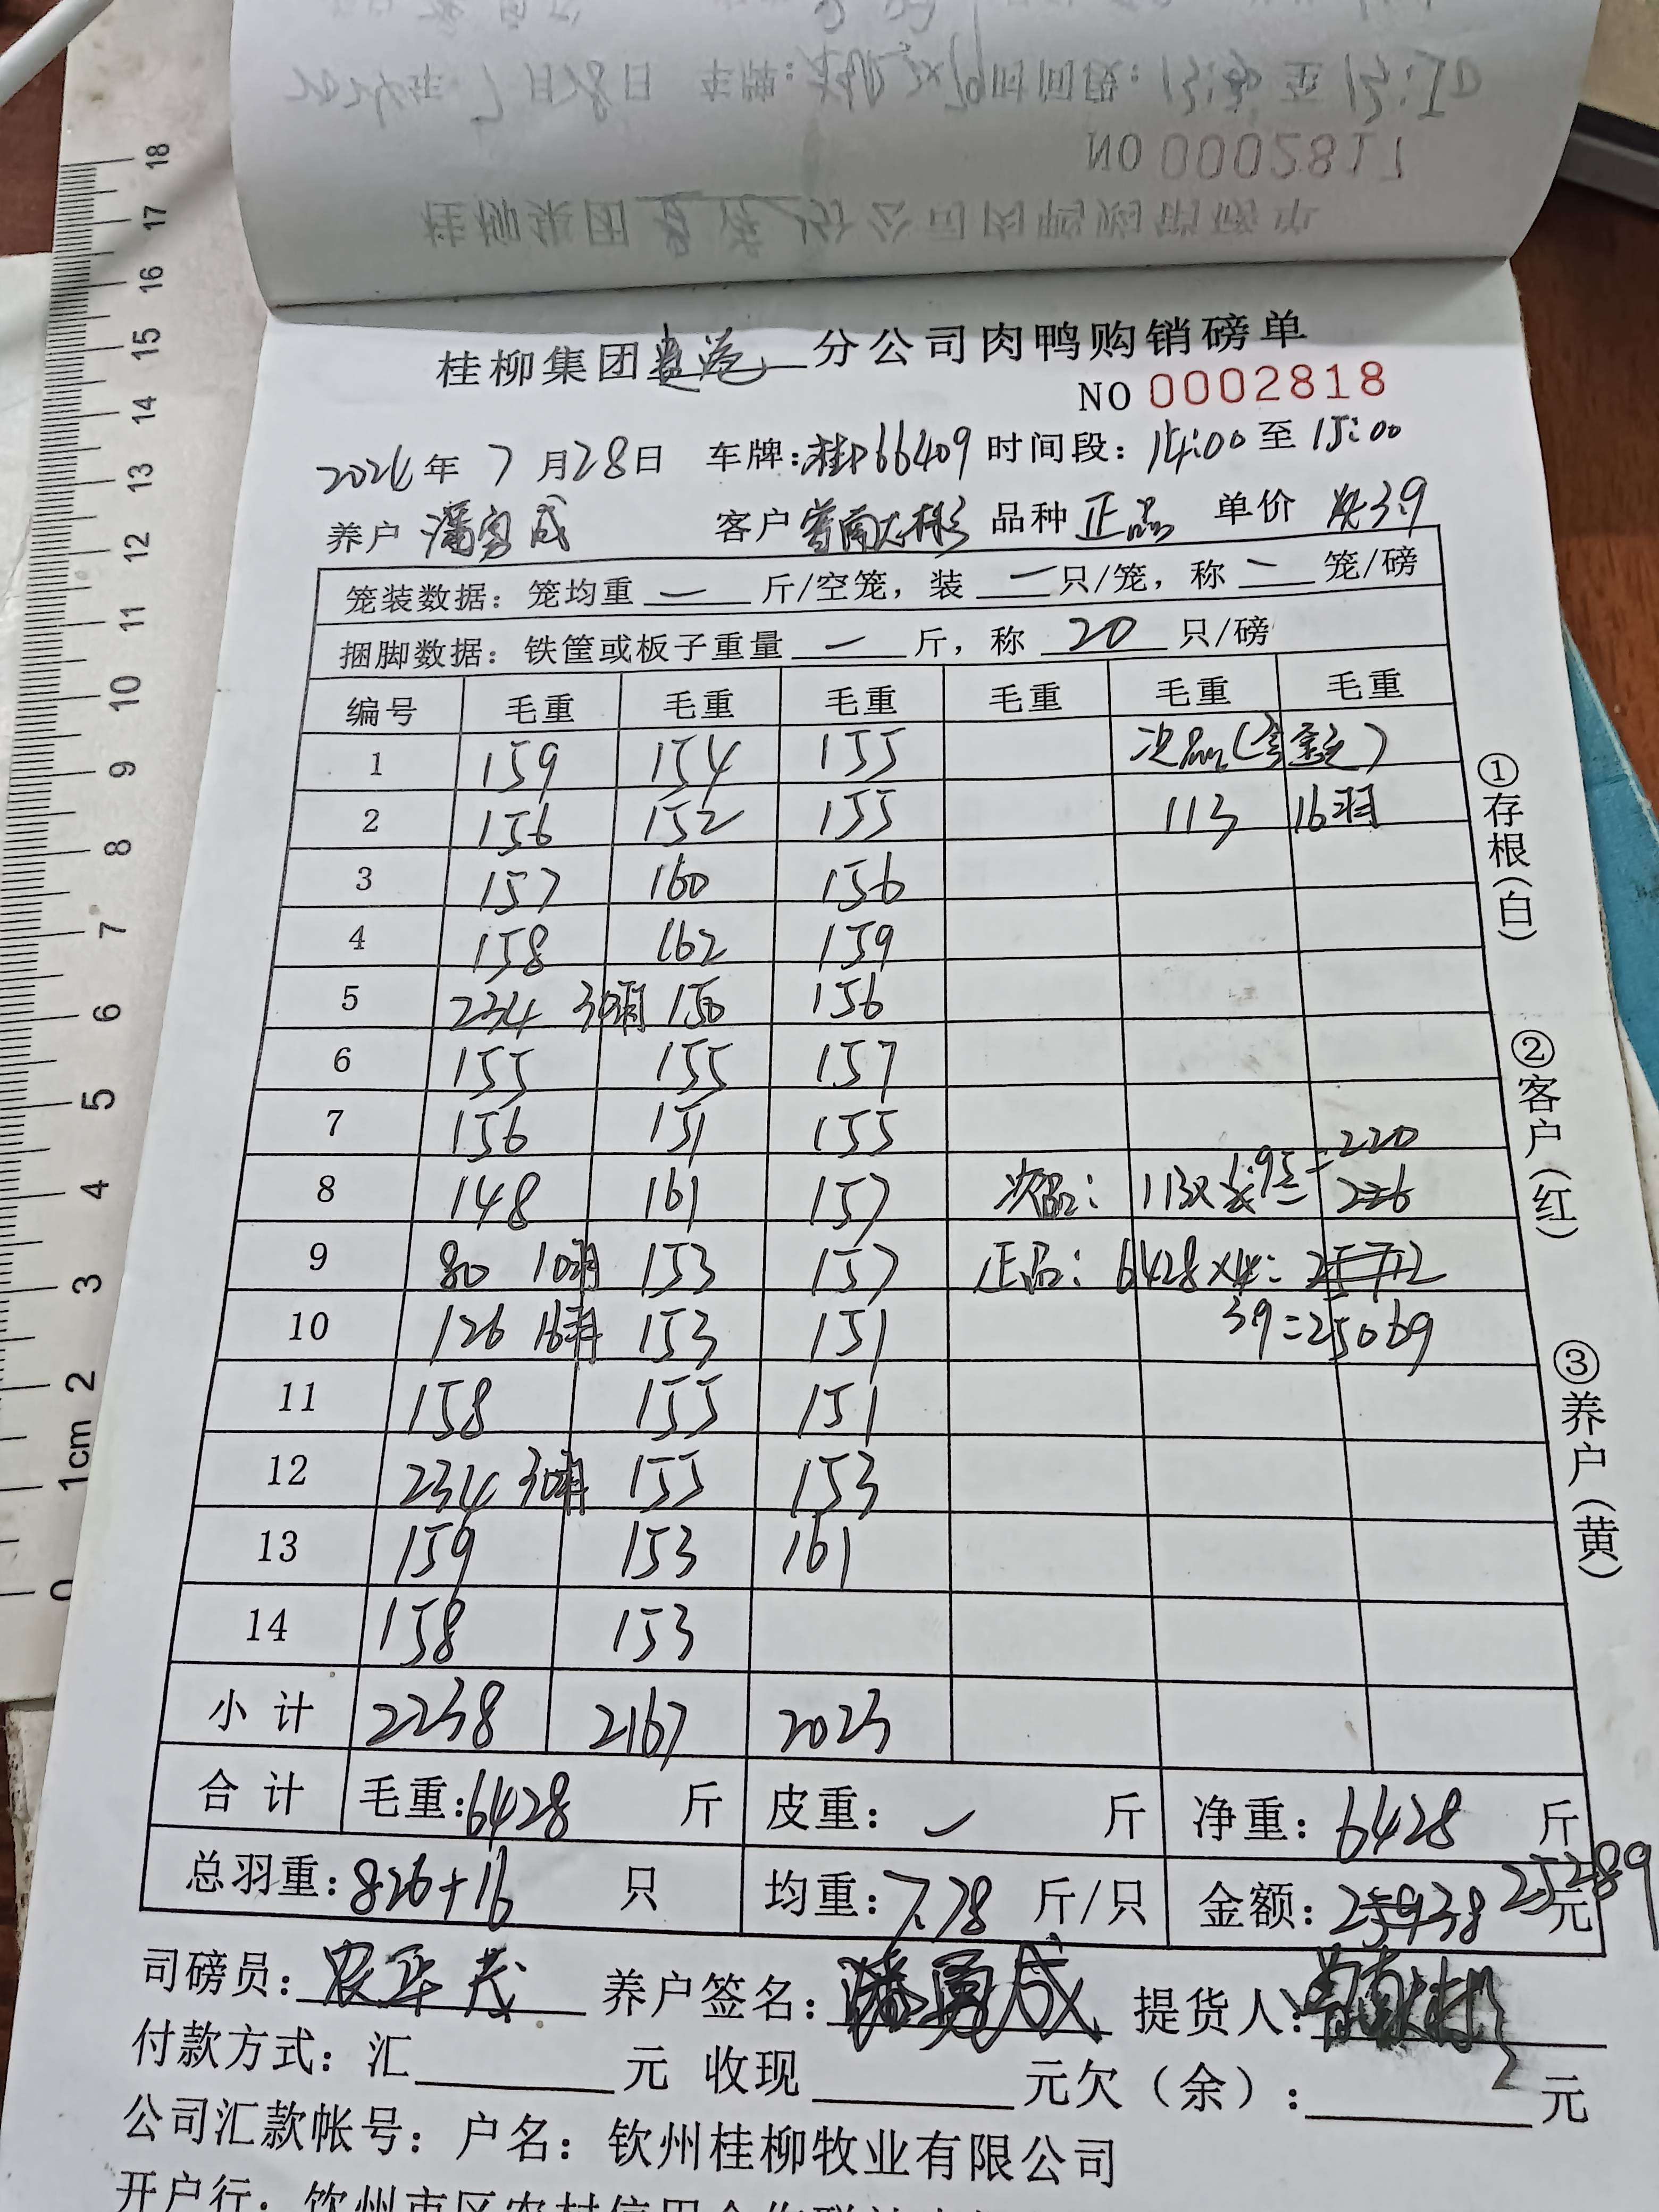 NO 0002817
桂柳集团 分公司肉鸭购销磅单
NO 0002818
2024年 7月28日 车牌:桂P66409 时间段: 14:00 至 15:00
养户 潘勇成 客户 曾南大彬 品种 正品 单价 3.9
笼装数据: 笼均重 一 斤/空笼, 装 一 只/笼, 称 一 笼/磅
捆脚数据: 铁筐或板子重量 一 斤, 称 20 只/磅
编号 毛重 毛重 毛重 毛重 毛重 毛重
1 159 154 155 次品
2 156 152 155 113 16羽
3 157 160 156
4 158 162 159
5 234 30羽 150 156
6 155 155 157
7 156 151 155
8 148 161 157 次品: 113x1.95=220 226
9 80 10羽 153 157 正品: 6428x4= 25712
10 126 16羽 153 151 3.9=25069
11 158 155 151
12 234 30羽 155 153
13 159 153 161
14 158 153
小计 2238 2167 2023
合计 毛重:6428 斤 皮重: 一 斤 净重: 6428 斤
总羽重:826+16 只 均重:7.78 斤/只 金额: 25938 25289 元
司磅员: 农华茂 养户签名: 潘勇成 提货人: 曾南大彬
付款方式: 汇 元 收现 元欠(余): 元
公司汇款帐号: 户名: 钦州桂柳牧业有限公司
开户行: 钦州市区农村信用合作联社
①存根(白)
②客户(红)
③养户(黄)
0 1cm 2 3 4 5 6 7 8 9 10 11 12 13 14 15 16 17 18